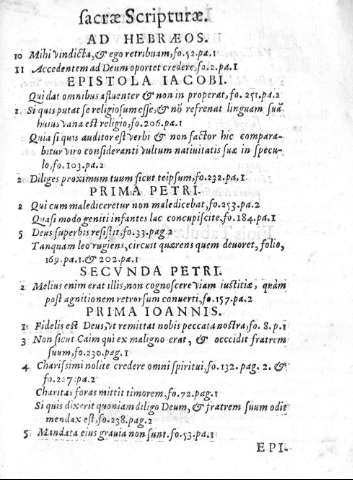 sacræ Scripturæ.
AD HEBRÆOS.
10 Mihi vindicta, & ego retribuam, fo.52.pa.1
11 Accedentem ad Deum oportet credere, fo.2.pa.1
EPISTOLA IACOBI.
Qui dat omnibus afluenter & non in properat, fo.251.pa.2
1. Si quis putat se religiosum esse, & nõ refrenat linguam suã
huius vana est religio, fo.206.pa.1
Quia si quis auditor est verbi & non factor hic compara-
bitur viro consideranti vultum natiuitatis suæ in specu-
lo, fo.103.pa.2
2 Diliges proximum tuum sicut teipsum, fo.232.pa.1
PRIMA PETRI.
2 Qui cum malediceretur non maledicebat, fo.253.pa.2
Quasi modo geniti infantes lac concupiscite, fo.184.pa.1
5 Deus superbis resistit, fo.33.pag.2
Tanquam leo rugiens, circuit quærens quem deuoret, folio,
169.pa.1.& 202.pa.1
SECVNDA PETRI.
2 Melius enim erat illis, non cognoscere viam iustitiæ, quàm
post agnitionem retrorsum conuerti, fo.157.pa.2
PRIMA IOANNIS.
1: Fidelis est Deus, vt remittat nobis peccata nostra, fo.8.p.1
3 Non sicut Caim qui ex maligno erat, & occcidit fratrem
suum, fo.230.pag.1
4. Charissimi nolite credere omni spiritui, fo.132.pag.2.&
fo.227.pa.2
Charitas foras mittit timorem, fo.72.pag.1
Si quis dixerit quoniam diligo Deum, & fratrem suum odit
mendax est, fo.238.pag.2
5. Mandata eius grauia non sunt. fo.53.pa.1
EPI-